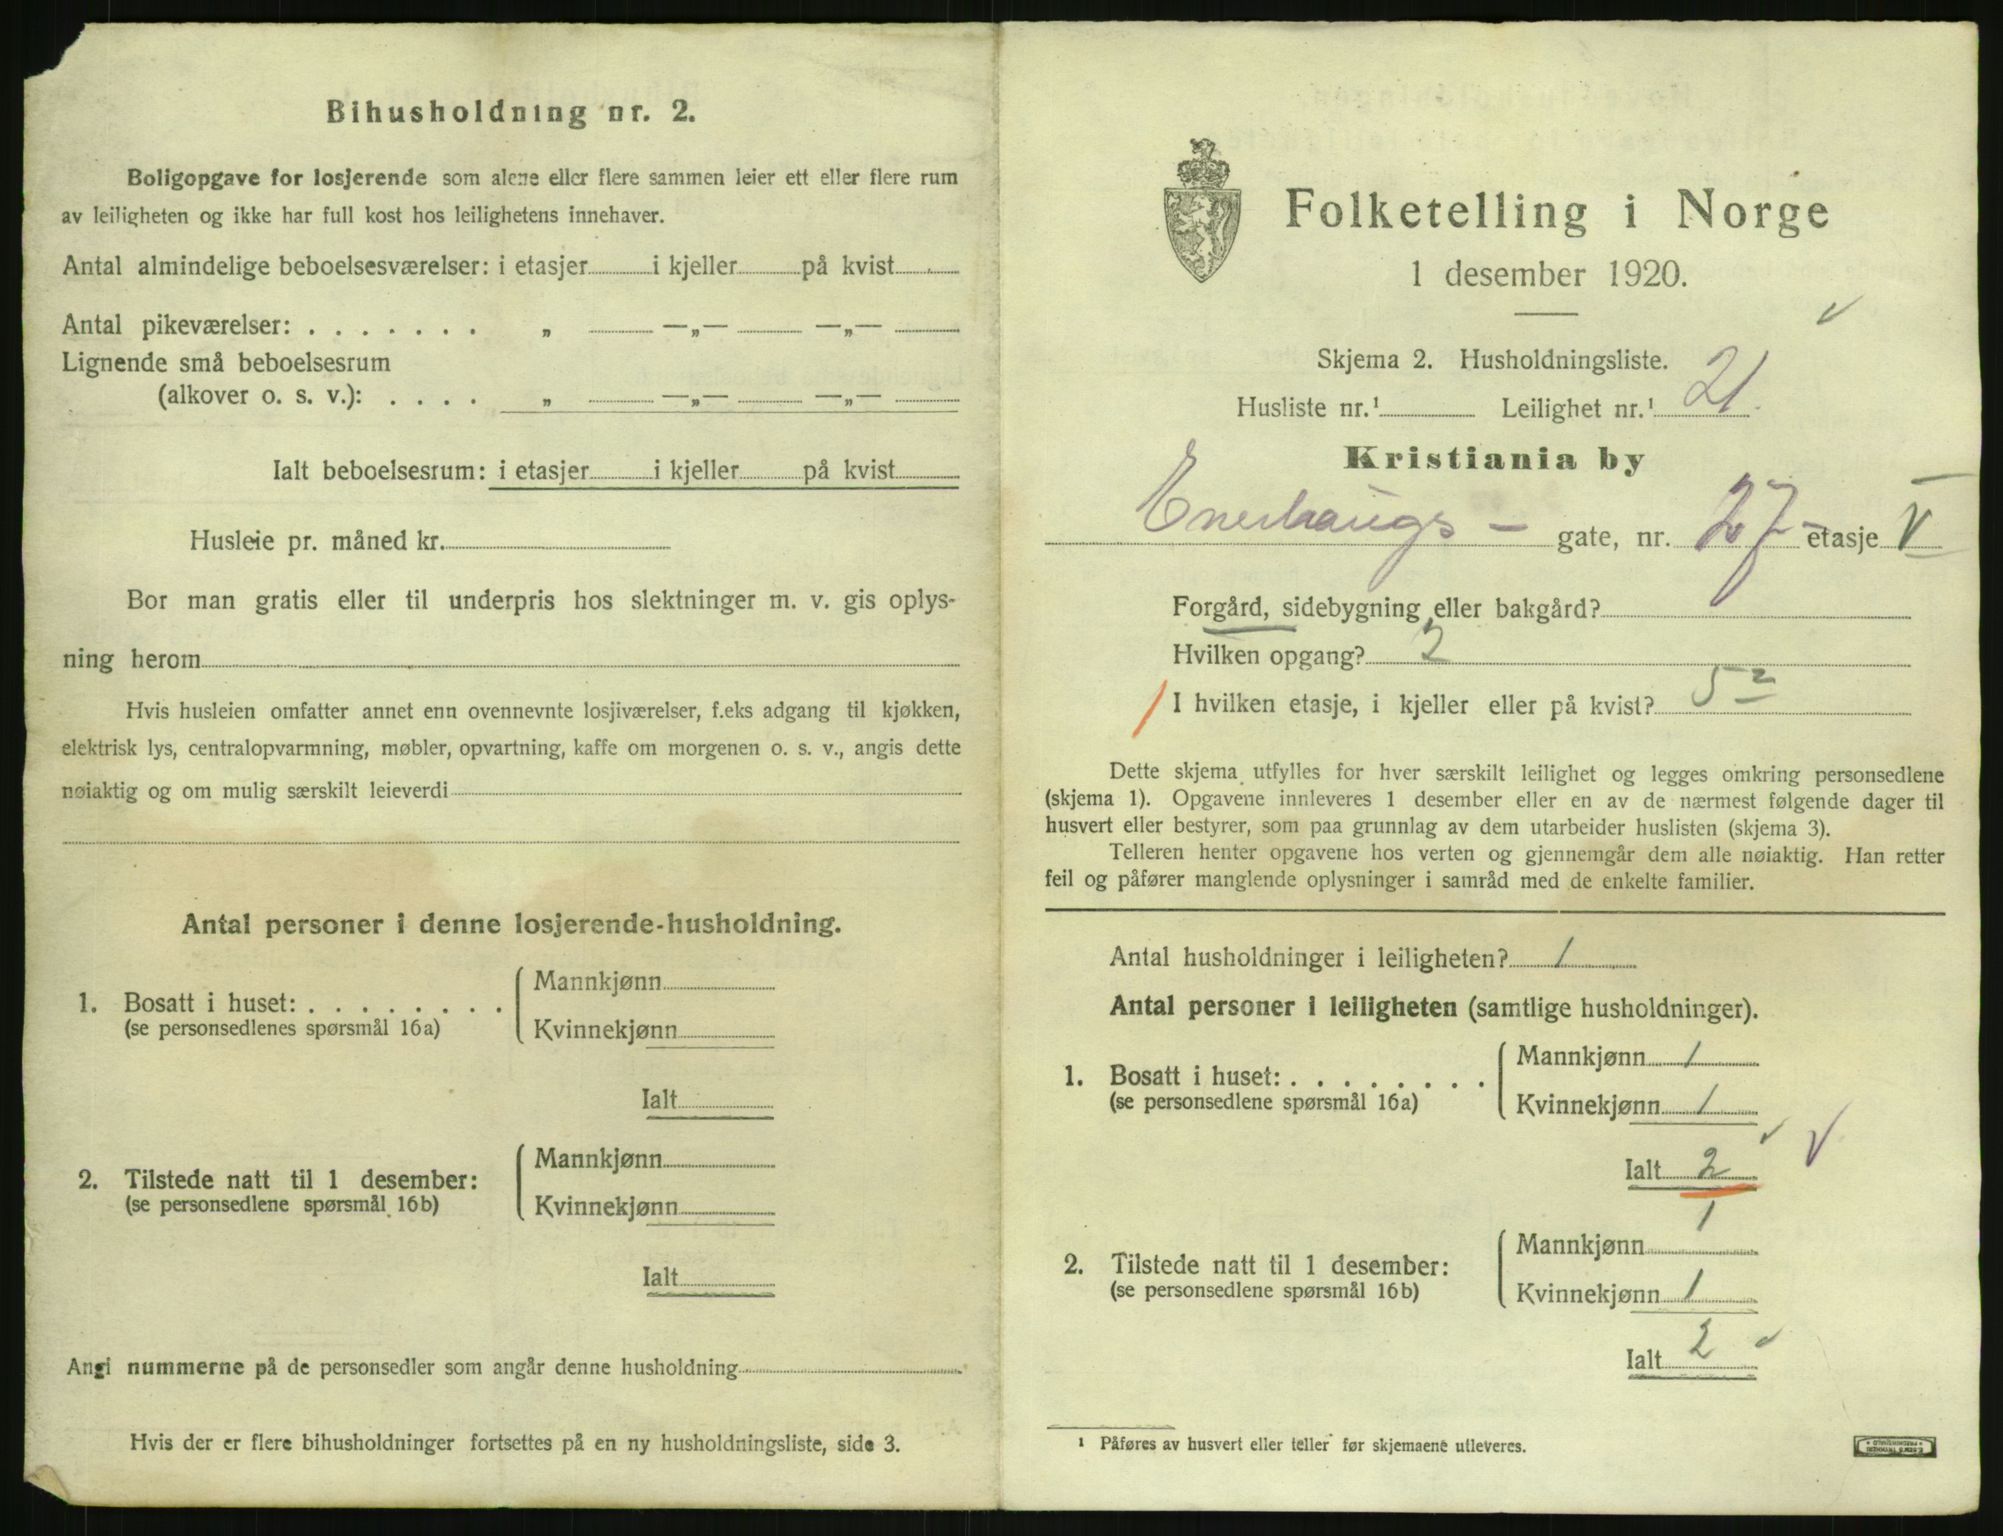 Bihusholdning nr. 2.
Boligopgave for losjerende som alene eller flere sammen leier ett eller flere rum
av leiligheten og ikke har full kost hos leilighetens innehaver.
Antal almindelige beboelsesværelser: i etasjer i kjeller på kvist
Antal pikeværelser: . . . . . . . „ —„— —„—
Lignende små beboelsesrum
(alkover o. s. v.): . . . . „ —„— —„—
Ialt beboelsesrum: i etasjer i kjeller på kvist
Husleie pr. måned kr.
Bor man gratis eller til underpris hos slektninger m. v. gis oplys-
ning herom
Hvis husleien omfatter annet enn ovennevnte losjiværelser, f.eks adgang til kjøkken,
elektrisk lys, centralopvarmning, møbler, opvartning, kaffe om morgenen o. s. v., angis dette
nøiaktig og om mulig særskilt leieverdi
Antal personer i denne losjerende-husholdning.
1. Bosatt i huset: . . . . . . . . Mannkjønn
(se personsedlenes spørsmål 16a) Kvinnekjønn
Ialt
2. Tilstede natt til 1 desember: Mannkjønn
(se personsedlene spørsmål 16b) Kvinnekjønn
Ialt
Angi nummerne på de personsedler som angår denne husholdning
Hvis der er flere bihusholdninger fortsettes på en ny husholdningsliste, side 3.
Folketelling i Norge
1 desember 1920.
Skjema 2. Husholdningsliste.
Husliste nr.¹ Leilighet nr.¹ 21
Kristiania by
Enerhaugs - gate, nr. 27 etasje V
Forgård, sidebygning eller bakgård?
Hvilken opgang? 2
I hvilken etasje, i kjeller eller på kvist? 5
Dette skjema utfylles for hver særskilt leilighet og legges omkring personsedlene
(skjema 1). Opgavene innleveres 1 desember eller en av de nærmest følgende dager til
husvert eller bestyrer, som paa grunnlag av dem utarbeider huslisten (skjema 3).
Telleren henter opgavene hos verten og gjennemgår dem alle nøiaktig. Han retter
feil og påfører manglende oplysninger i samråd med de enkelte familier.
Antal husholdninger i leiligheten? 1
Antal personer i leiligheten (samtlige husholdninger).
1. Bosatt i huset: . . . . . . . . Mannkjønn 1
(se personsedlene spørsmål 16a) Kvinnekjønn 1
Ialt 2
2. Tilstede natt til 1 desember: Mannkjønn 1
(se personsedlene spørsmål 16b) Kvinnekjønn 1
Ialt 2
¹ Påføres av husvert eller teller før skjemaene utleveres.